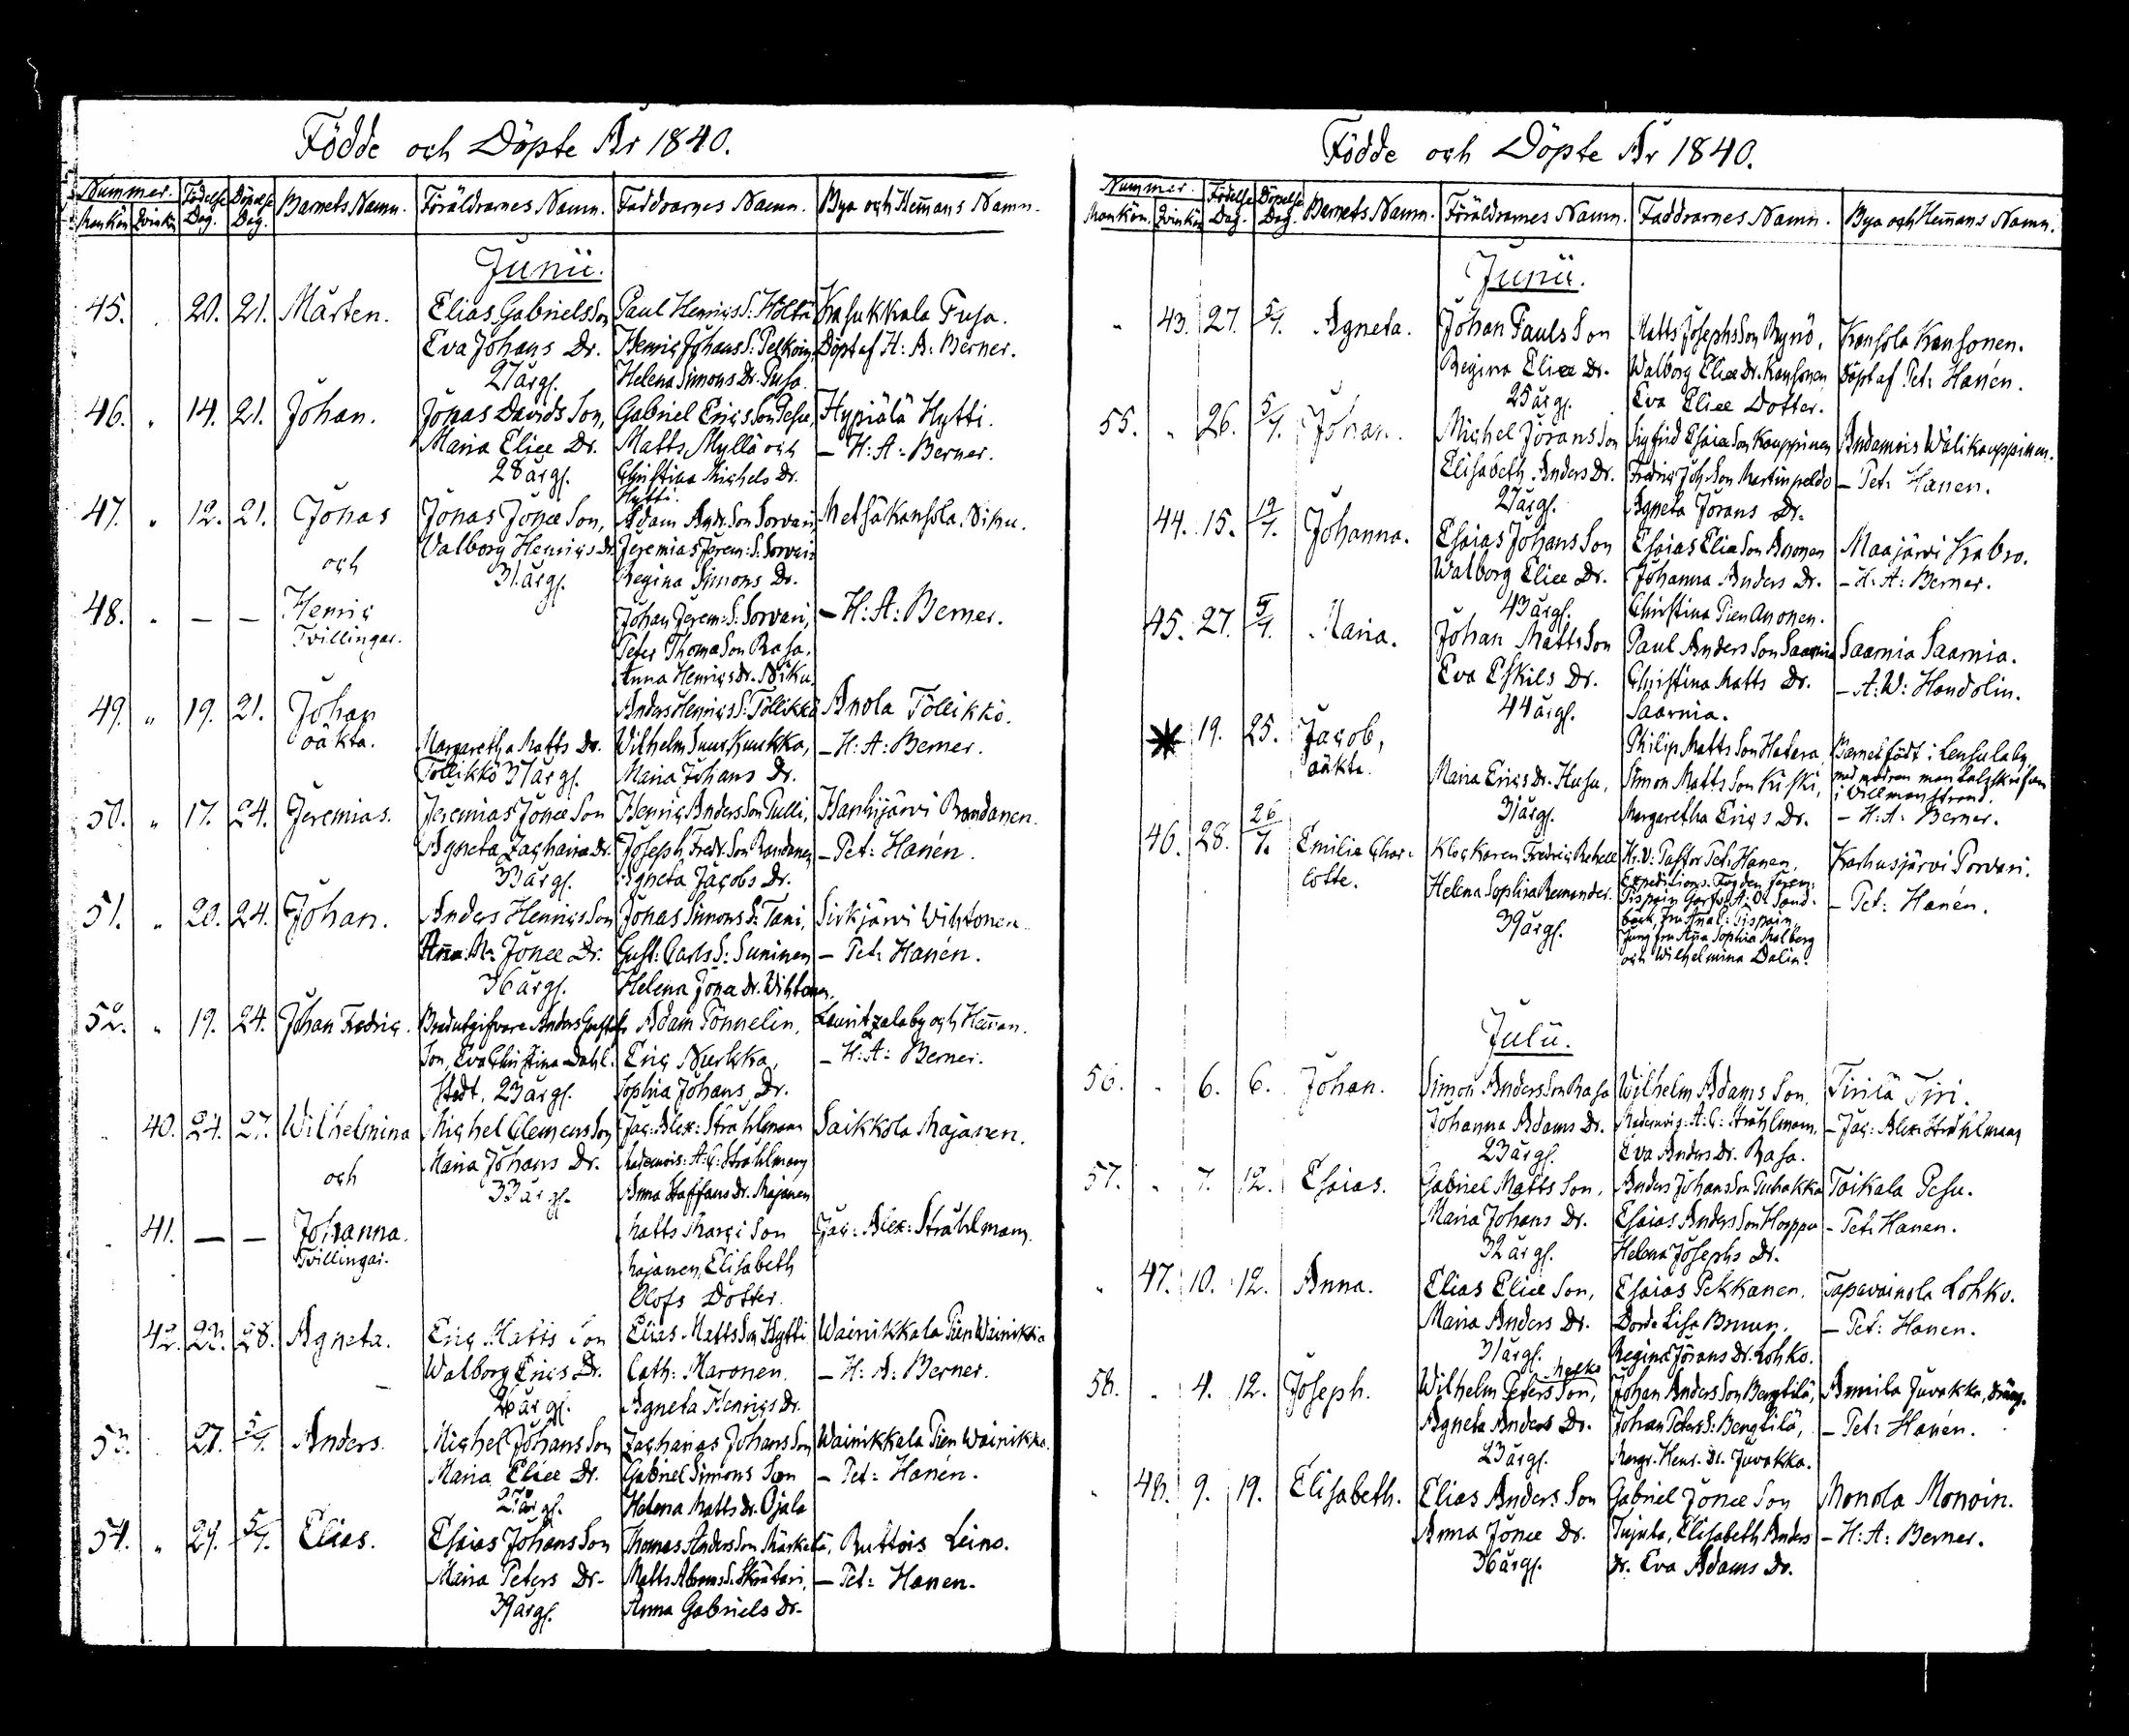 Födde och Döpte År 1840.
Nummer. Födelse Döpelse Barnets Namn. Föräldrarnes Namn. Faddrarnes Namn. Bya och Hem̄ans Namn.
Mankön Qvinkön Dag. Dag.
Junii.
45. 20. 21. Mårten. Elias Gabrielsson Paul Henrics S. Hölttä Kasukkala Pusa.
Eva Johans Dr. Henric Johans S. Pelkoin, Döpt af H: A: Berner.
27 årg. Helena Simons Dr. Pusa.
46. " 14. 21. Johan. Jonas Davids Son, Gabriel Erics Son Pesu, Hypiälä Hytti.
Maria Eliæ Dr. Matts Myllö och — H: A: Berner.
28 årg. Christina Michels Dr.
Hytti.
47. " 12. 21. Jonas Jonas Jonæ Son, Adam Andr. Son Sorvari, Metsäkansola, Siku.
och Valborg Henrics Dr. Jeremias Jerem: S. Sorvari
31 årg. Regina Simons Dr.
48. " — — Henric Johan Jerem: S. Sorvari, — H: A: Berner.
Tvillingar. Peter Thomæ Son Rasa,
Anna Henrics Dr. Siku.
49. " 19. 21. Johan Anders Henrics S. Töllikkö Anola Töllikkö.
oäkta. Margaretha Matts Dr. Wilhelm Suur Kuukka, — H: A: Berner.
Töllikkö 37 årg. Maria Johans Dr.
50. " 17. 24. Jeremias. Jeremias Jonæ Son Henric Anders Son Pulli, Hanhijärvi Randanen.
Agneta Zachariæ Dr. Joseph Fredr. Son Randanen — Pet: Hanén.
33 årg. Agneta Jacobs Dr.
51. " 20. 24. Johan. Anders Henrics Son Jonas Simons S. Tani, Sirkjärvi Wihtonen.
Anna M: Jonæ Dr. Gust: Carls S: Suninen — Pet: Hanén.
36 årg. Helena Jonæ Dr. Wihtonen.
52. " 19. 24. Johan Fredric. Anders Adam Tönnelin, Lauritzala by och Hem̄an.
Son, Eva Christina Dahl- Eric Nurkka, — H: A: Berner.
stedt, 23 årg. Sophia Johans Dr.
40. 24. 27. Wilhelmina Michel Clemens Son Jac: Alex: Stråhlmann Saikkola Majanen.
och Maria Johans Dr. Mademois: A: C: Stråhlmann
33 årg. Anna Staffans Dr. Majanen
41. — — Johanna. Matts Marci Son Jac: Alex: Stråhlmann.
Tvillingar. Majanen, Elisabeth
Olofs Dotter.
42. 22. 28. Agneta. Eric Matts Son Elias Matts Son Hytti Wainikkala Pien Wainikka
Walborg Erics Dr. Cath: Maronen. — H: A: Berner.
26 årg. Agneta Henrics Dr.
53. 27. 5/7. Anders. Michel Johans Son Zacharias Johans Son Wainikkala Pien Wainikka.
Maria Eliæ Dr. Gabriel Simons Son — Pet: Hanén.
27 årg. Helena Matts Dr. Ojala
54. " 29. 5/7. Elias. Esaias Johans Son Thomas Anders Son Märkälä, Ruttois Leino.
Maria Peters Dr. — Pet: Hanen.
39 årg. Anna Gabriels Dr.
Födde och Döpte År 1840.
Nummer. Födelse Döpelse Barnets Namn. Föräldrarnes Namn. Faddrarnes Namn. Bya och Hem̄ans Namn.
Mankön. Qvinkön Dag. Dag.
Junii.
" 43. 27. 5/7. Agneta. Johan Pauls Son Matts Josephs Son Rynö, Kansola Kansonen.
Regina Eliæ Dr. Walborg Eliæ Dr. Kansonen Döpt af Pet: Hanén.
25 årg. Eva Eliæ Dotter.
55. " 26. 5/7. Johan. Michel Jörans Son Sigfrid Esaiæ Son Kauppinen Andamois Wälikauppinen.
Elisabeth Anders Dr. Fredric Joh: Son Martinpeldo — Pet: Hanen.
27 årg. Agneta Jörans Dr.
44. 15. 19/7. Johanna. Esaias Johans Son Esaias Eliæ Son Anonen Maajärvi Kabro.
Walborg Eliæ Dr. Johanna Anders Dr. — H: A: Berner.
43 årg. Christina Pien Anonen.
45. 27. 5/7. Maria. Johan Matts Son Paul Anders Son Saarnia Saarnia Saarnia.
Eva Eskils Dr. Christina Matts Dr. — A: W: Handolin.
44 årg. Saarnia.
19. 25. Jacob, Philip Matts Son Hatara, Barnet födt i Lensula by,
oäkta. Maria Erics Dr. Husu, Simon Matts Son Kiiski, med modren mantalsskrifven
31 årg. Margaretha Erics Dr. i Willmanstrand.
— H: A: Berner.
46. 28. 26/7. Emilia Char- Klockaren Fredric Rehell Hr. V: Pastor Pet: Hanen, Karhusjärvi Porvari.
lotte. Helena Sophia Renander. Expeditions Fogden Jerem: — Pet: Hanén.
39 årg. Pispain,
Jungfru Anna Sophia Malberg
och Wilhelmina Dalin.
Julii.
56. " 6. 6. Johan. Simon Anders Son Rasa Wilhelm Adams Son, Tirilä Tiri.
Johanna Adams Dr. Mademois: A: C: Stråhlmann, — Jac: Alex: Stråhlmann
23 årg. Eva Anders Dr. Rasa.
57. " 7. 12. Esaias. Gabriel Matts Son, Anders Johans Son Tuhakka Toikala Pesu.
Maria Johans Dr. Esaias Anders Son Hoppu — Pet: Hanen.
32 årg. Helena Josephs Dr.
" 47. 10. 12. Anna. Elias Eliæ Son, Esaias Pekkanen, Tapavainola Lohko.
Maria Anders Dr. Dord: Lisa Bruun. — Pet: Hanen.
31 årg. Regina Jörans Dr. Lohko.
58. " 4. 12. Joseph. Wilhelm Peters Son, Johan Anders Son Bengtilä, Armila Juvakka,
Agneta Anders Dr. Johan Peters S: Bengtilä, — Pet: Hanén.
23 årg. Margr. Henr. Dr. Juvakka.
" 48. 9. 19. Elisabeth. Elias Anders Son Gabriel Jonæ Son Monola Monoin.
Anna Jonæ Dr. Tujula, Elisabeth Anders — H: A: Berner.
36 årg. Dr. Eva Adams Dr.